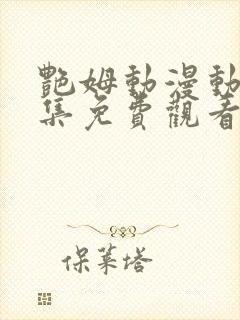 艷姆動漫動
集免費觀看
保萊塔